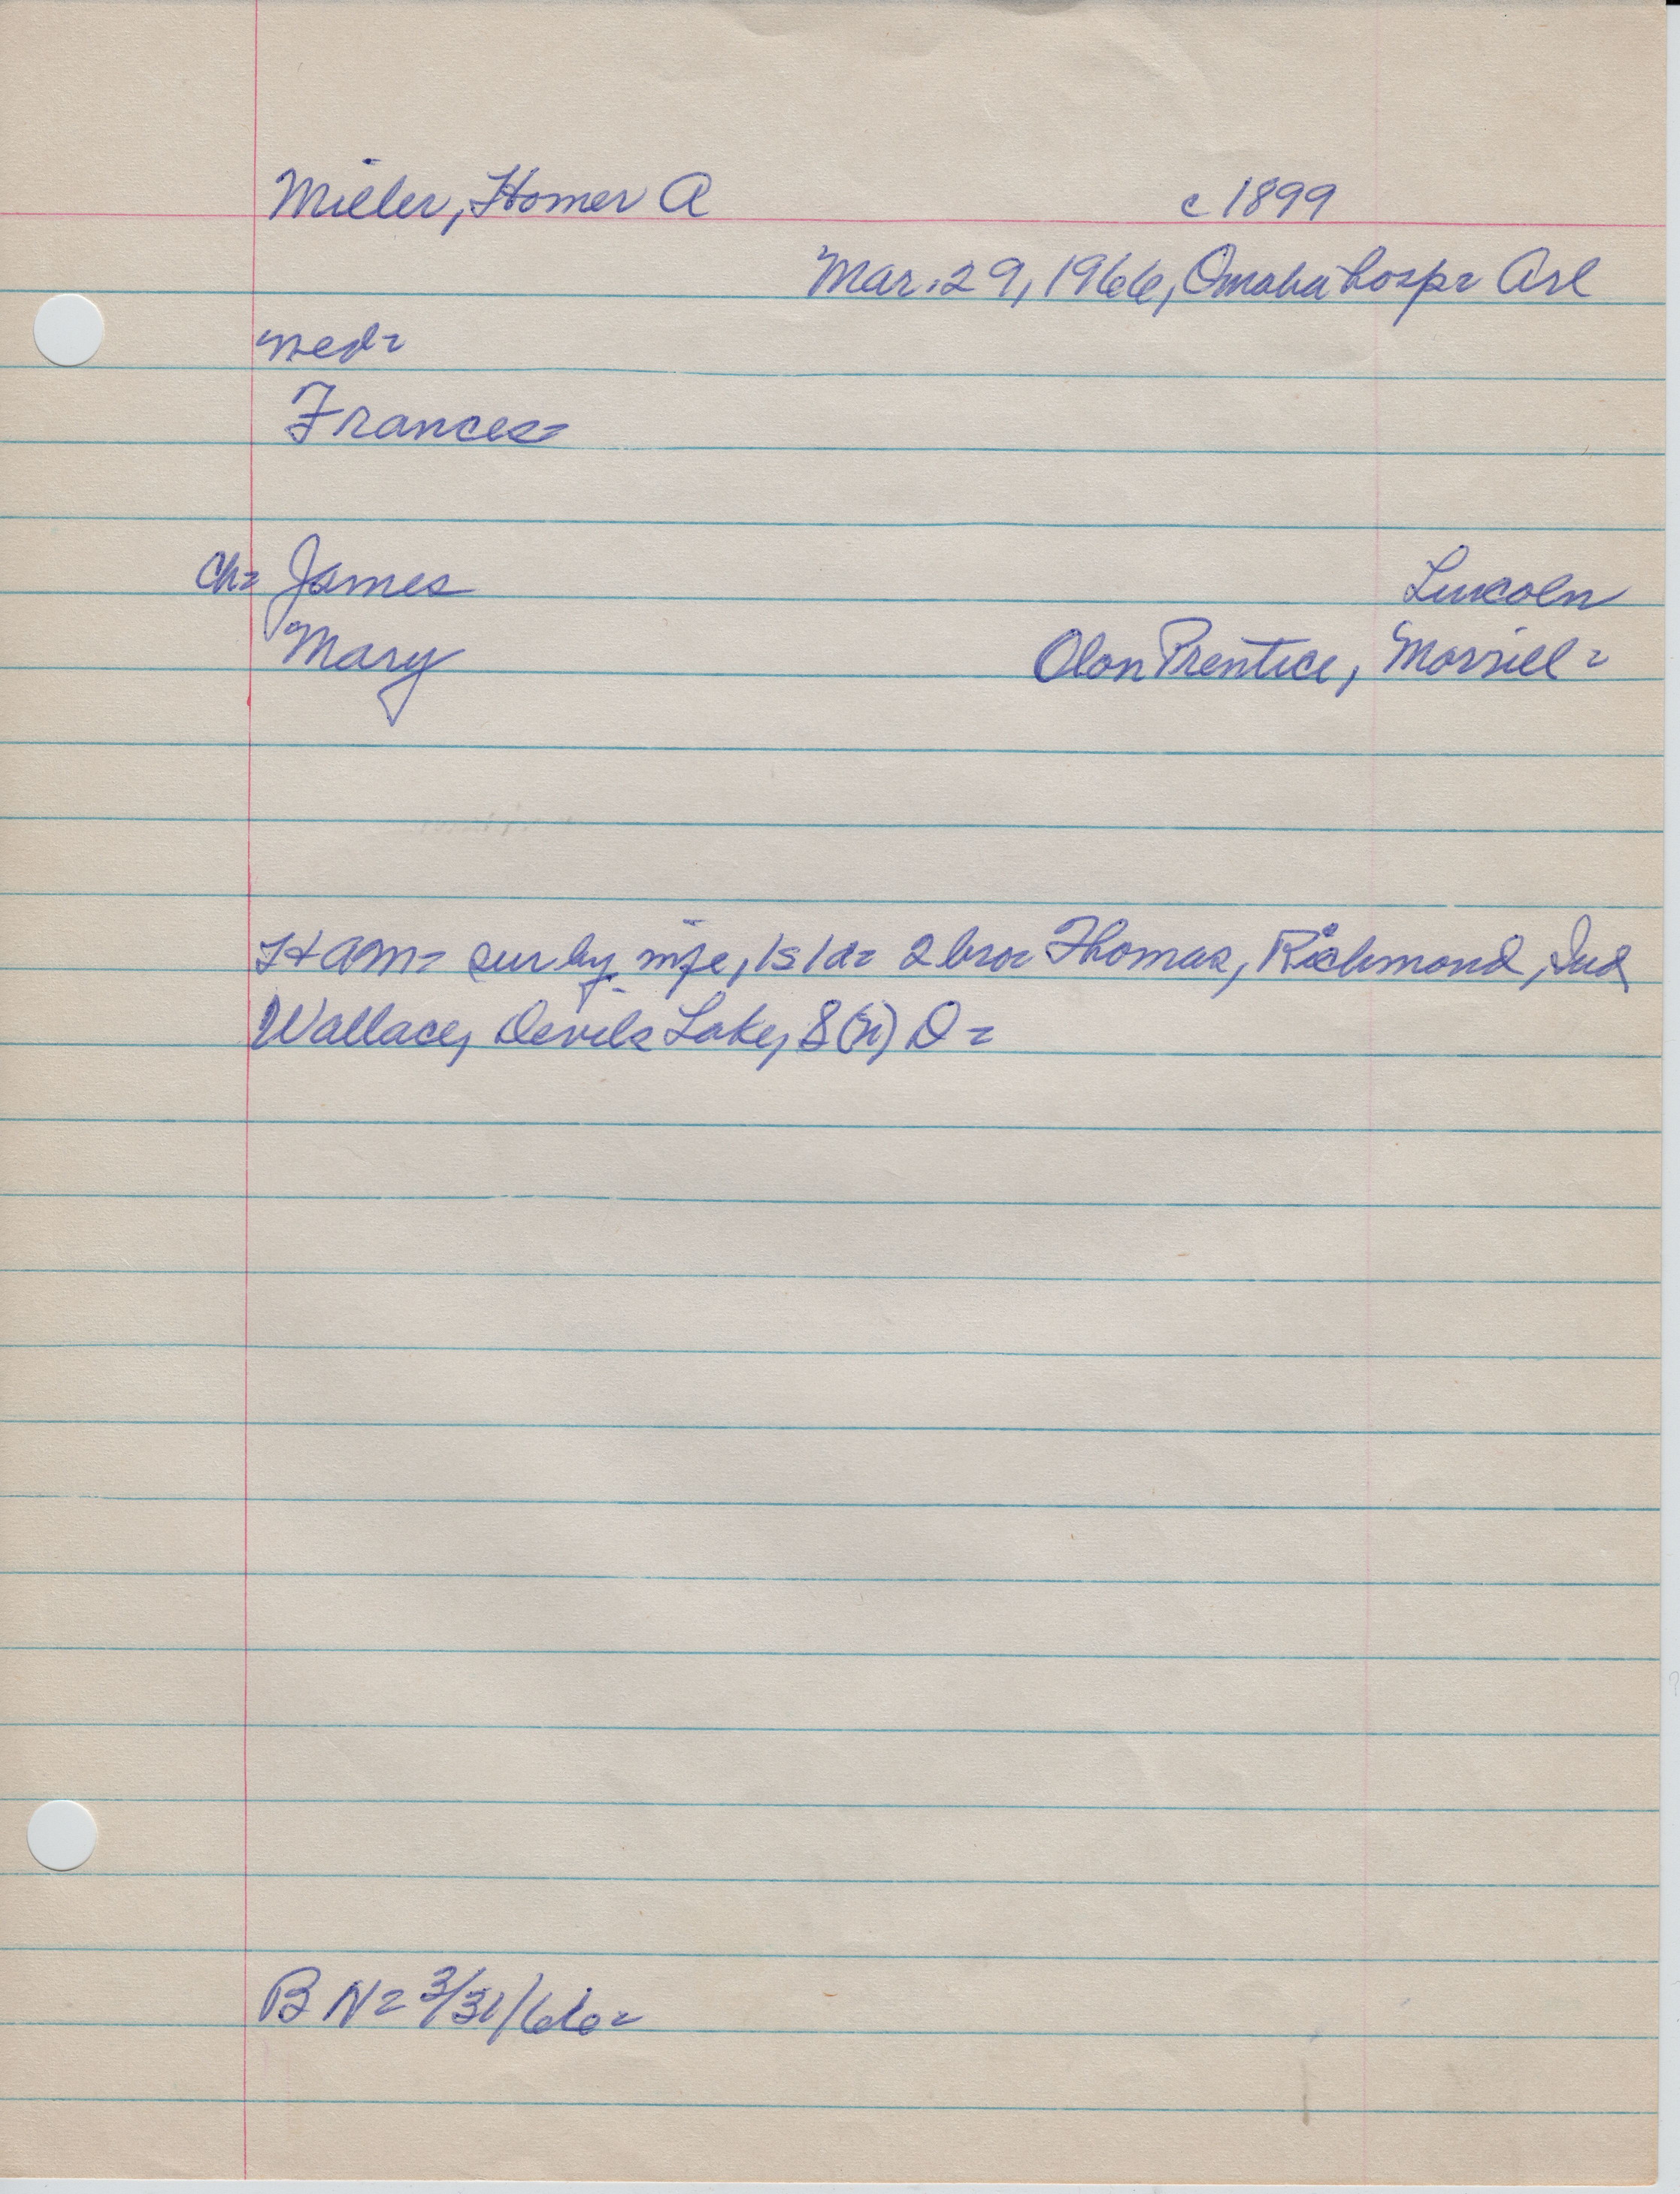 Miller, Homer A c 1899
Mar. 29, 1966, Omaha hosp= Arl
med=
Frances=
Ch= James Lincoln
Mary Olon Prentice, Morrill=
HAM= sur by wife, 1s 1d= 2 bro= Thomas, Richmond, Ind
Wallace, Devils Lake, S(N) D=
BN= 3/31/66=